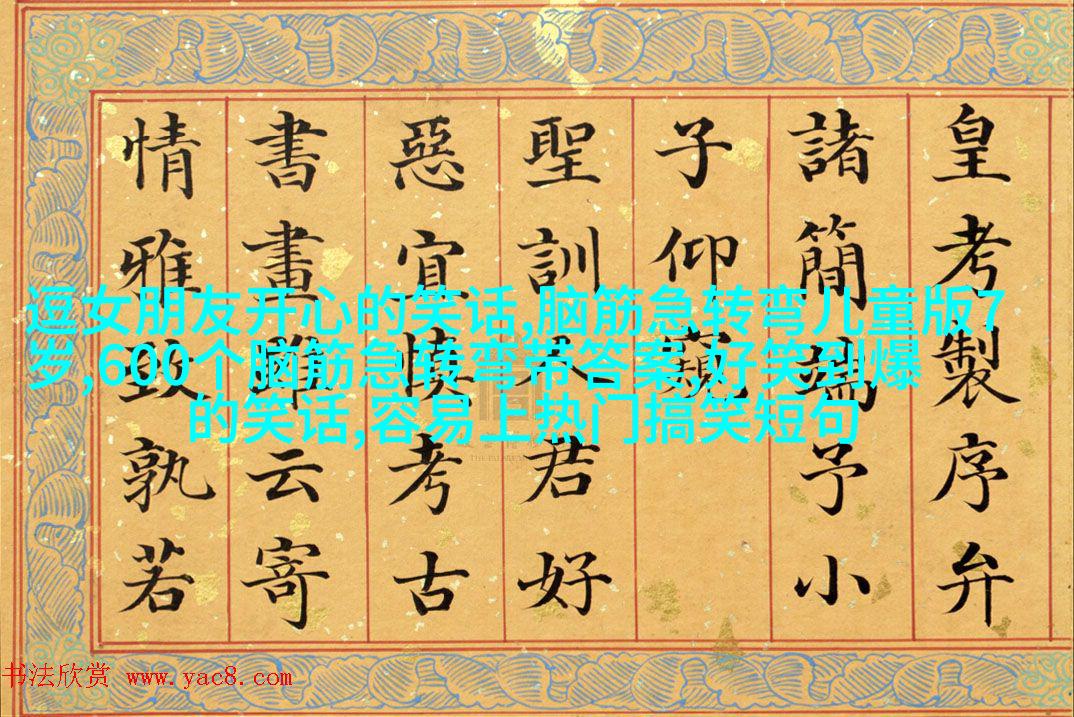 皇考製序弁
諸簡端予小
子仰窺
聖訓人君好
惡宜慎考古
書畫雖云寄
情雅致孰若
逗女朋友开心的笑话,脑筋急转弯儿童版7
岁,600个脑筋急转弯带答案,好笑到爆
的笑话,容易上热门搞笑短句
书法欣赏 www.yac8.com